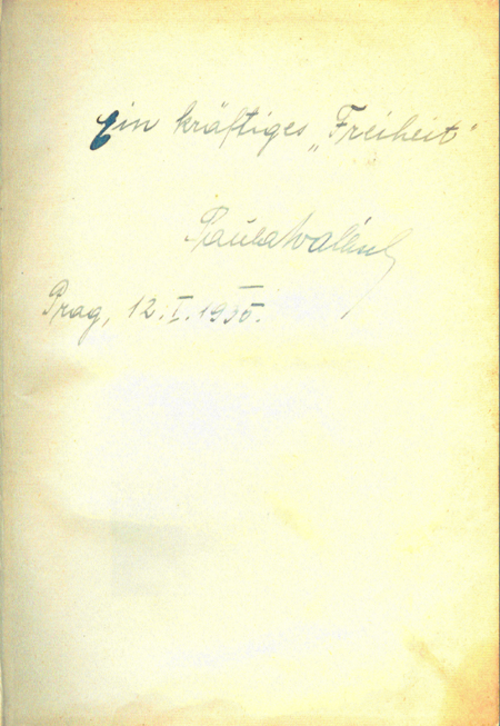 Ein kräftiges „Freiheit“
Paula Wallisch
Prag, 12.I.1935.